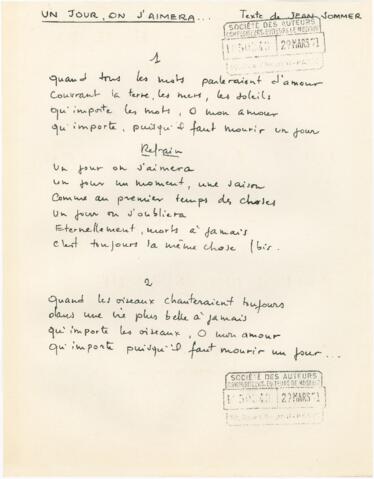 UN JOUR, ON J'AIMERA... Texte de JEAN JOMMER
SOCIÉTÉ DES AUTEURS
29 MARS 71
1
Quand tous les mots parleraient d'amour
Couvrant la terre, les mers, les soleils
qu'importe les mots, O mon amour
qu'importe, puisqu'il faut mourir un jour
Refrain
Un jour on s'aimera
Un jour un moment, une saison
Comme au premier temps des choses
Un jour on s'oubliera
Eternellement, morts à jamais
C'est toujours la même chose (bis.
2
Quand les oiseaux chanteraient toujours
dans une vie plus belle à jamais
qu'importe les oiseaux, O mon amour
qu'importe puisqu'il faut mourir un jour...
SOCIÉTÉ DES AUTEURS
29 MARS 71